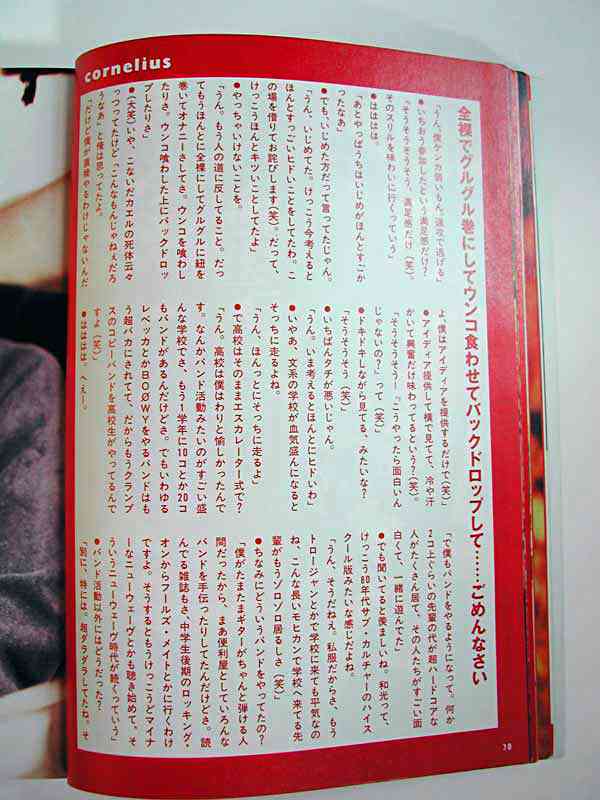 cornelius
全裸でグルグル巻にしてウンコ食わせてバックドロップして……ごめんなさい
「うん。僕ケンカ弱いもん。速攻で逃げる」
●いちおう参加したという満足感だけ？
「そうそうそうそう、満足感だけ（笑）。
そのスリルを味わいに行くっていう」
●はははは。
「あとやっぱうちはいじめがほんとすごか
ったなあ」
●でも、いじめた方だって言ってたじゃん。
「うん、いじめてた。けっこう今考えると
ほんとすっごいヒドいことをしてたわ。こ
の場を借りてお詫びします（笑）。だって、
けっこうほんとキツいことしてたよ」
●やっちゃいけないことを。
「うん。もう人の道に反してること。だっ
てもうほんとに全裸にしてグルグルに紐を
巻いてオナニーさしてさ。ウンコを喰わし
たりさ。ウンコ喰わした上にバックドロッ
プしたりさ」
●（大笑）いや、こないだカエルの死体云々
っつってたけど「こんなもんじゃねぇだろ
うなあ」と俺は思ってたよ。
「だけど僕が直接やるわけじゃないんだ
よ、僕はアイディアを提供するだけで（笑）」
●アイディア提供して横で見てて、冷や汗
かいて興奮だけ味わってるという？（笑）。
「そうそうそう！『こうやったら面白いん
じゃないの？』って（笑）」
●ドキドキしながら見てる、みたいな？
「そうそうそう（笑）」
●いちばんタチが悪いじゃん。
「うん。いま考えるとほんとにヒドいわ」
●いやあ、文系の学校が血気盛んになると
そっちに走るよね。
「うん、ほんっとにそっちに走るよ」
●で高校はそのままエスカレーター式で？
「うん。高校は僕はわりと愉しかったんで
す。なんかバンド活動みたいのがすごい盛
んな学校でさ、もう1学年に10コとか20コ
もバンドがあるんだけどさ。でもいわゆる
レベッカとかBOØWYをやるバンドはも
う超バカにされてて、だからもうクランプ
スのコピーバンドを高校生がやってるんで
すよ（笑）」
●はははは、えー。
「で僕もバンドをやるようになって。何か
2コ上ぐらいの先輩の代が超ハードコアな
人がたくさん居て、その人たちがすごい面
白くて、一緒に遊んでた」
●でも聞いてると羨ましいね。和光って、
けっこう80年代サブ・カルチャーのハイス
クール版みたいな感じだよね。
「うん、そうだねえ。私服だからさ、もう
トロージャンとかで学校に来ても平気なの
ね、こんな長いモヒカンで学校へ来てる先
輩がもうゾロゾロ居るしさ（笑）」
●ちなみにどういうバンドをやってたの？
「僕がたまたまギターがちゃんと弾ける人
間だったから、まあ便利屋としていろんな
バンドを手伝ったりしてたんだけどさ。読
んでる雑誌もさ、中学生後期のロッキング・
オンからフールズ・メイトとかに行くわけ
ですよ。そうするともうけっこうどマイナ
ーなニューウェーヴとかも聴き始めて、そ
ういうニューウェーヴ時代が続くっていう」
●バンド活動以外にはどうだった？
「別に、特には。超ダラダラしてたね。そ
70